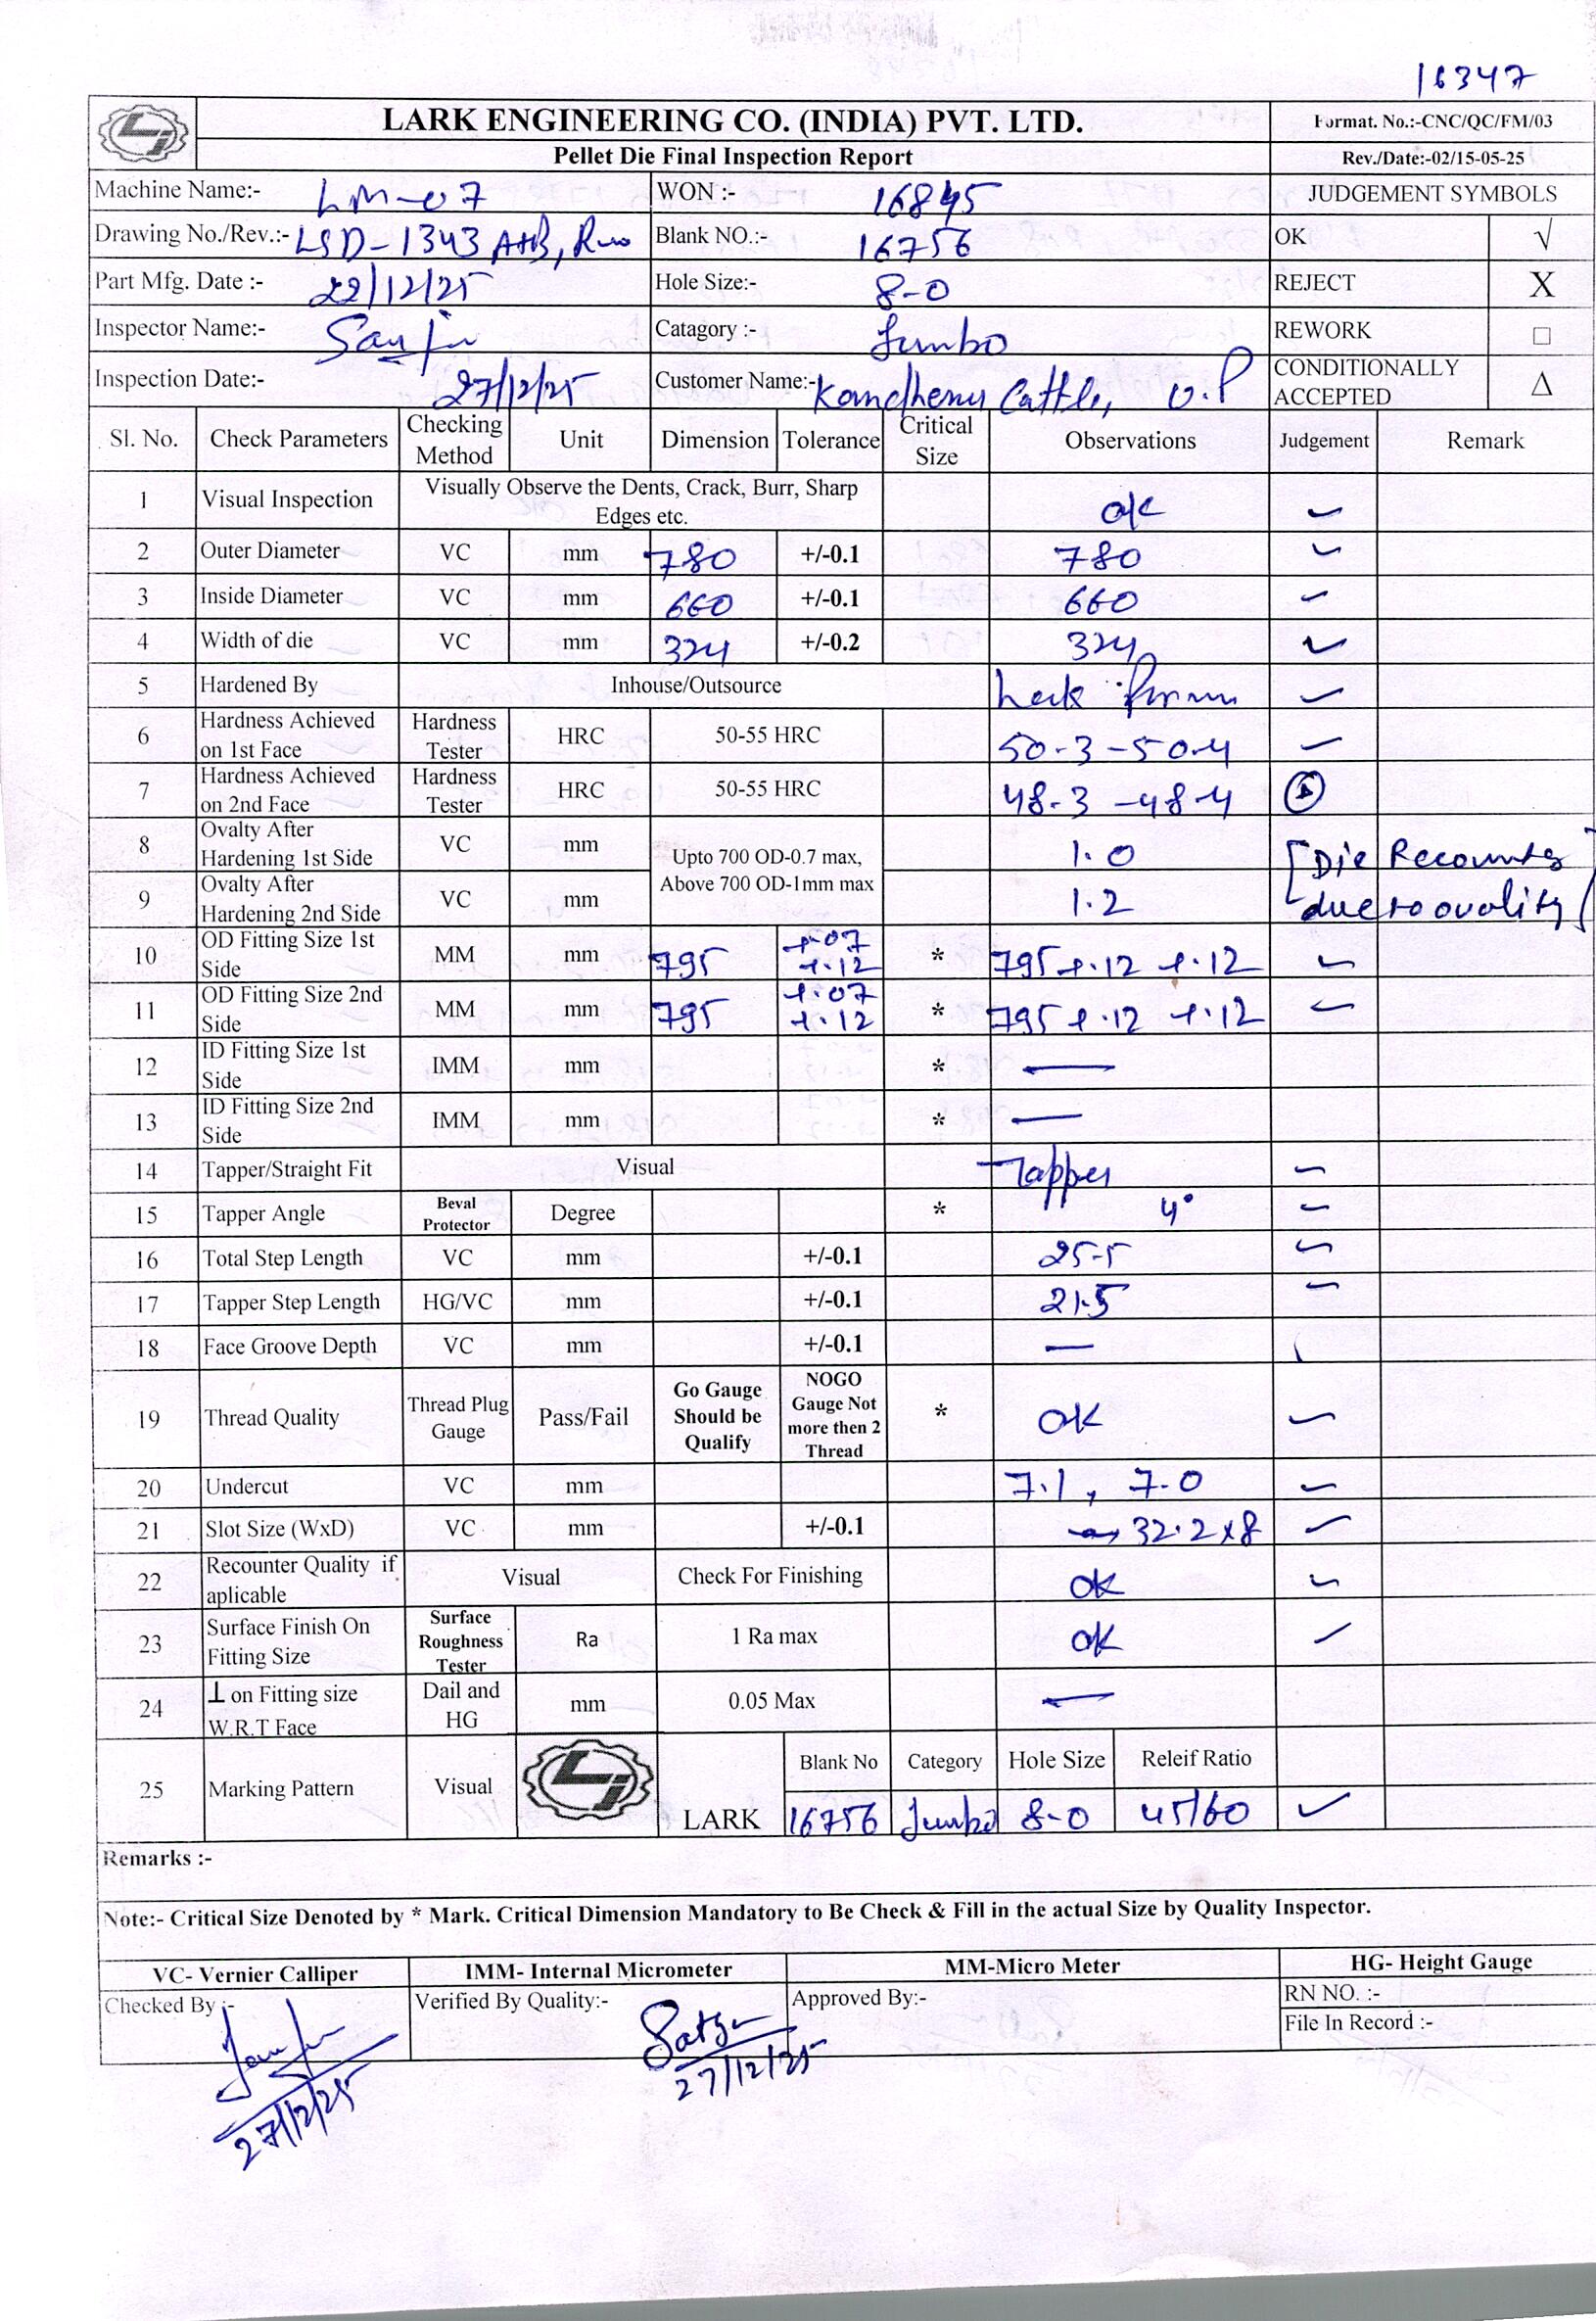 16347
LARK ENGINEERING CO. (INDIA) PVT. LTD. Format. No.:-CNC/QC/FM/03
Pellet Die Final Inspection Report Rev./Date:-02/15-05-25
Machine Name:- LM-07 WON :- 16845 JUDGEMENT SYMBOLS
Drawing No./Rev.:- LSD-1343 A+B, R Blank NO.:- 16756 OK √
Part Mfg. Date :- 22/12/25 Hole Size:- 8-0 REJECT X
Inspector Name:- Catagory :- Jumbo REWORK □
Inspection Date:- 27/12/25 Customer Name:- Kamdhenu Cattle, U.P CONDITIONALLY ACCEPTED Δ
Sl. No. Check Parameters Checking Method Unit Dimension Tolerance Critical Size Observations Judgement Remark
1 Visual Inspection Visually Observe the Dents, Crack, Burr, Sharp Edges etc. ok ✓
2 Outer Diameter VC mm 780 +/-0.1 780 ✓
3 Inside Diameter VC mm 660 +/-0.1 660 ✓
4 Width of die VC mm 324 +/-0.2 324 ✓
5 Hardened By Inhouse/Outsource Lark ✓
6 Hardness Achieved on 1st Face Hardness Tester HRC 50-55 HRC 50-3-50-4 ✓
7 Hardness Achieved on 2nd Face Hardness Tester HRC 50-55 HRC 48-3-48-4
8 Ovalty After Hardening 1st Side VC mm Upto 700 OD-0.7 max, 1.0 [Die Recounter
9 Ovalty After Hardening 2nd Side VC mm Above 700 OD-1mm max 1.2 due to ovality]
10 OD Fitting Size 1st Side MM mm 795 +.07 +.12 * 795 +.12 +.12 ✓
11 OD Fitting Size 2nd Side MM mm 795 +.07 +.12 * 795 +.12 +.12 ✓
12 ID Fitting Size 1st Side IMM mm * —
13 ID Fitting Size 2nd Side IMM mm * —
14 Tapper/Straight Fit Visual Tapper ✓
15 Tapper Angle Beval Protector Degree * 4° ✓
16 Total Step Length VC mm +/-0.1 25-5 ✓
17 Tapper Step Length HG/VC mm +/-0.1 21.5 ✓
18 Face Groove Depth VC mm +/-0.1 —
19 Thread Quality Thread Plug Gauge Pass/Fail Go Gauge Should be Qualify NOGO Gauge Not more then 2 Thread * OK ✓
20 Undercut VC mm 7.1, 7.0 ✓
21 Slot Size (WxD) VC mm +/-0.1 32.2x8 ✓
22 Recounter Quality if aplicable Visual Check For Finishing ok ✓
23 Surface Finish On Fitting Size Surface Roughness Tester Ra 1 Ra max ok ✓
24 ⊥ on Fitting size W.R.T Face Dail and HG mm 0.05 Max —
25 Marking Pattern Visual LARK Blank No Category Hole Size Releif Ratio
16756 Jumbo 8-0 45/60 ✓
Remarks :-
Note:- Critical Size Denoted by * Mark. Critical Dimension Mandatory to Be Check & Fill in the actual Size by Quality Inspector.
VC- Vernier Calliper IMM- Internal Micrometer MM-Micro Meter HG- Height Gauge
Checked By :- Verified By Quality:- Approved By:- RN NO. :-
File In Record :-
27/12/25 27/12/25